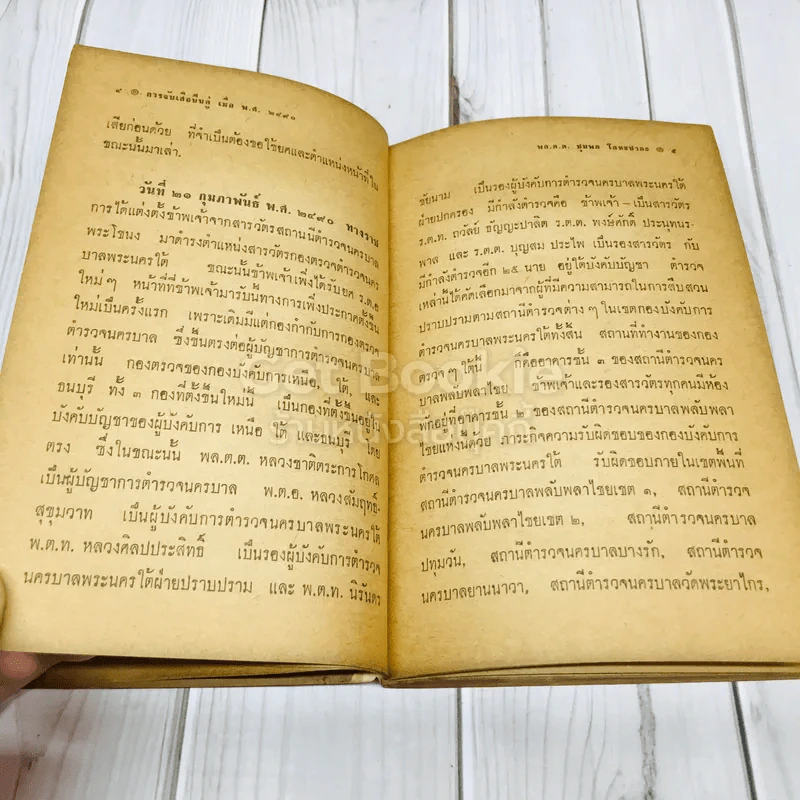 ๔ ๏ การจับเสือขึ้นคู่ เมื่อ พ.ศ. ๒๔๙๐
เสียก่อนด้วย ที่จำเป็นต้องขอใช้ยศและตำแหน่งหน้าที่ใน
ขณะนั้นมาเล่า.
วันที่ ๒๑ กุมภาพันธ์ พ.ศ. ๒๔๙๐ ทางราช
การได้แต่งตั้งข้าพเจ้าจากสารวัตรสถานนีตำรวจนครบาล
พระโขนง มาดำรงตำแหน่งสารวัตรกองตรวจตำรวจนคร
บาลพระนครใต้ ขณะนั้นข้าพเจ้าเพิ่งได้รับยศ ร.ต.อ
ใหม่ๆ หน้าที่ที่ข้าพเจ้ามารับนี้ทางการเพิ่งประกาศตั้งขึ้น
ใหม่เป็นครั้งแรก เพราะเดิมมีแต่กองกำกับการกองตรวจ
ตำรวจนครบาล ซึ่งขึ้นตรงต่อผู้บัญชาการตำรวจนครบาล
เท่านั้น กองตรวจของกองบังคับการเหนือ, ใต้, และ
ธนบุรี ทั้ง ๓ กองที่ตั้งขึ้นใหม่นี้ เป็นกองที่ตั้งขึ้นอยู่ใน
บังคับบัญชาของผู้บังคับการ เหนือ ใต้ และธนบุรี โดย
ตรง ซึ่งในขณะนั้น พล.ต.ต. หลวงชาติตระการโกศล
เป็นผู้บัญชาการตำรวจนครบาล พ.ต.อ. หลวงสัมฤทธิ์-
สุขุมวาท เป็นผู้บังคับการตำรวจนครบาลพระนครใต้
พ.ต.ท. หลวงศิลปประสิทธิ์ เป็นรองผู้บังคับการตำรวจ
นครบาลพระนครใต้ฝ่ายปราบปราม และ พ.ต.ท. นิรันดร
พล.ต.ต. ขุนพล โลหะชาละ ๏ ๕
ชัยนาม เป็นรองผู้บังคับการตำรวจนครบาลพระนครใต้
ฝ่ายปกครอง มีกำลังตำรวจคือ ข้าพเจ้า–เป็นสารวัตร
ร.ต.ท. ถวัลย์ ธัญญะปาลิต ร.ต.ต. พงษ์ศักดิ์ ประนุทนร-
พาล และ ร.ต.ต. บุญสม ประไพ เป็นรองสารวัตร กับ
มีกำลังตำรวจอีก ๒๕ นาย อยู่ใต้บังคับบัญชา ตำรวจ
เหล่านี้ได้คัดเลือกมาจากผู้ที่มีความสามารถในการสืบสวน
ปราบปรามตามสถานีตำรวจต่างๆ ในเขตกองบังคับการ
ตำรวจนครบาลพระนครใต้ทั้งสิ้น สถานที่ทำงานของกอง
ตรวจๆ ใต้นี้ ก็คืออาคารชั้น ๓ ของสถานีตำรวจนคร
บาลพลับพลาไชย ข้าพเจ้าและรองสารวัตรทุกคนมีห้อง
พักอยู่ที่อาคารชั้น ๒ ของสถานีตำรวจนครบาลพลับพลา
ไชยแห่งนี้ด้วย ภาระกิจความรับผิดชอบของกองบังคับการ
ตำรวจนครบาลพระนครใต้ รับผิดชอบภายในเขตพื้นที่
สถานีตำรวจนครบาลพลับพลาไชยเขต ๑, สถานีตำรวจ
นครบาลพลับพลาไชยเขต ๒, สถานีตำรวจนครบาล
ปทุมวัน, สถานีตำรวจนครบาลบางรัก, สถานีตำรวจ
นครบาลยานนาวา, สถานีตำรวจนครบาลวัดพระยาไกร,
Get Bookie
ร้านหนังสือบุ๊คกี้